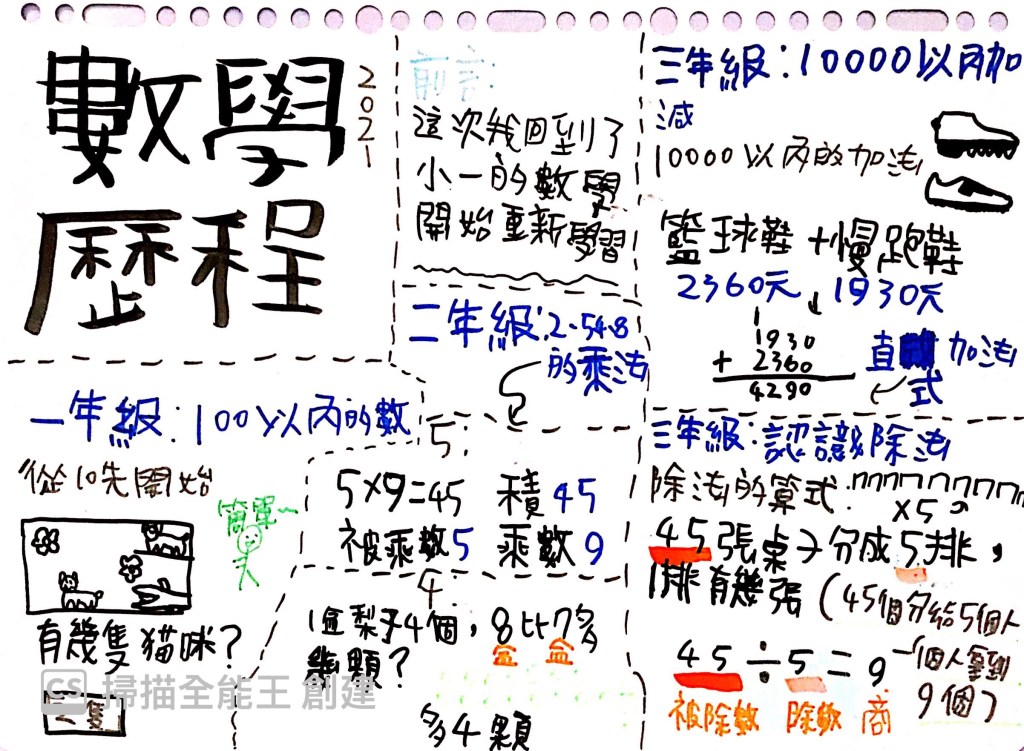 數學
歷程
2021
前言:
這次我回到了
小一的數學
開始重新學習
一年級:100以內的數
從10先開始
簡單~
有幾隻貓咪?
二隻
二年級:2、5、4、8
的乘法
5:
5×9=45 積45
被乘數5 乘數9
4:
1盒梨子4個,8比7多
盒 盒
幾顆?
多4顆
三年級:10000以內加
減
10000以內的加法
籃球鞋+慢跑鞋
2360元 1930元
1
1930
+ 2360
4290
直 加法
式
三年級:認識除法
除法的算式:
×5
45張桌子分成5排,
1排有幾張(45個分給5個人
45÷5=9
一個人拿到
9個了
被除數 除數 商
CS 掃描全能王 創建